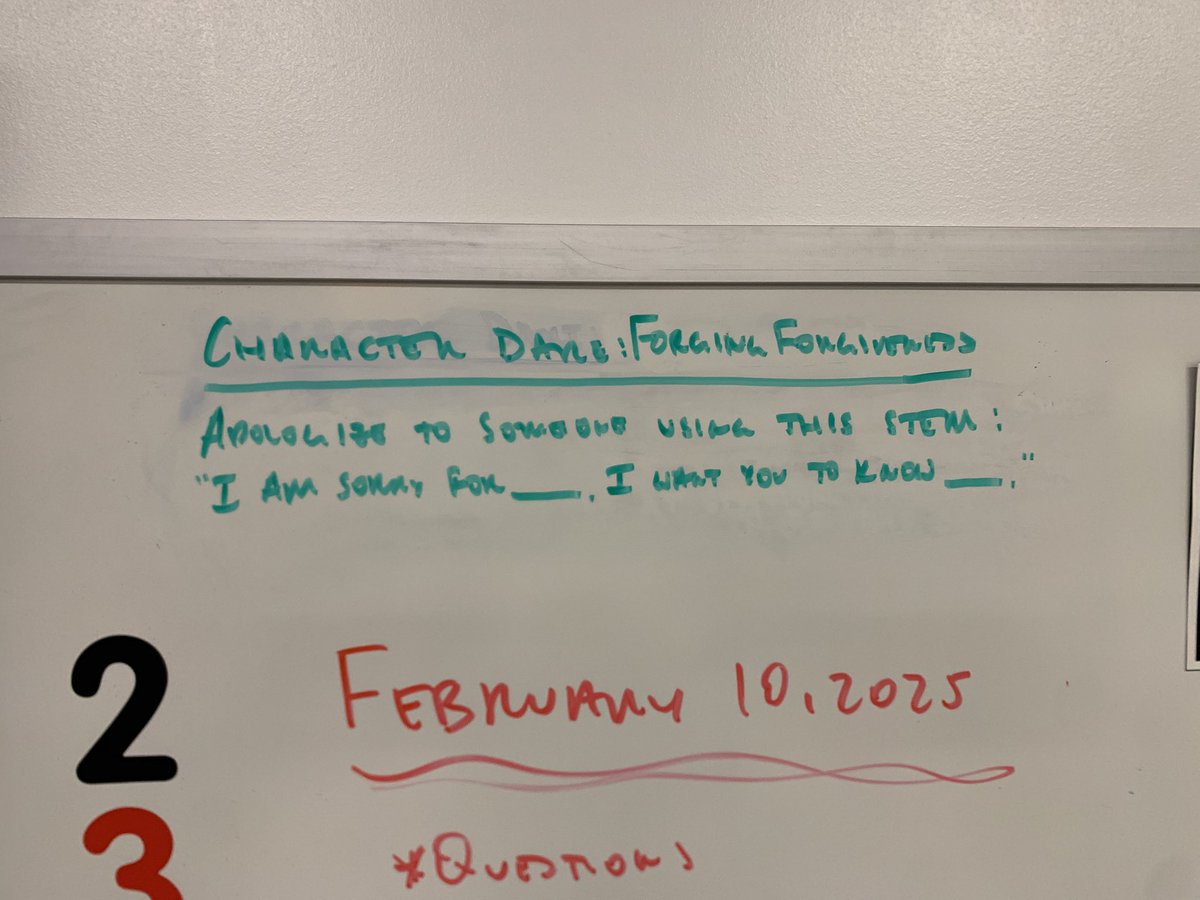 CHARACTER DARE: FORGING FORGIVENESS
APOLOGIZE TO SOMEONE USING THIS STEM:
"I AM SORRY FOR ___. I WANT YOU TO KNOW ___."
2
FEBRUARY 10, 2025
3
*QUESTIONS